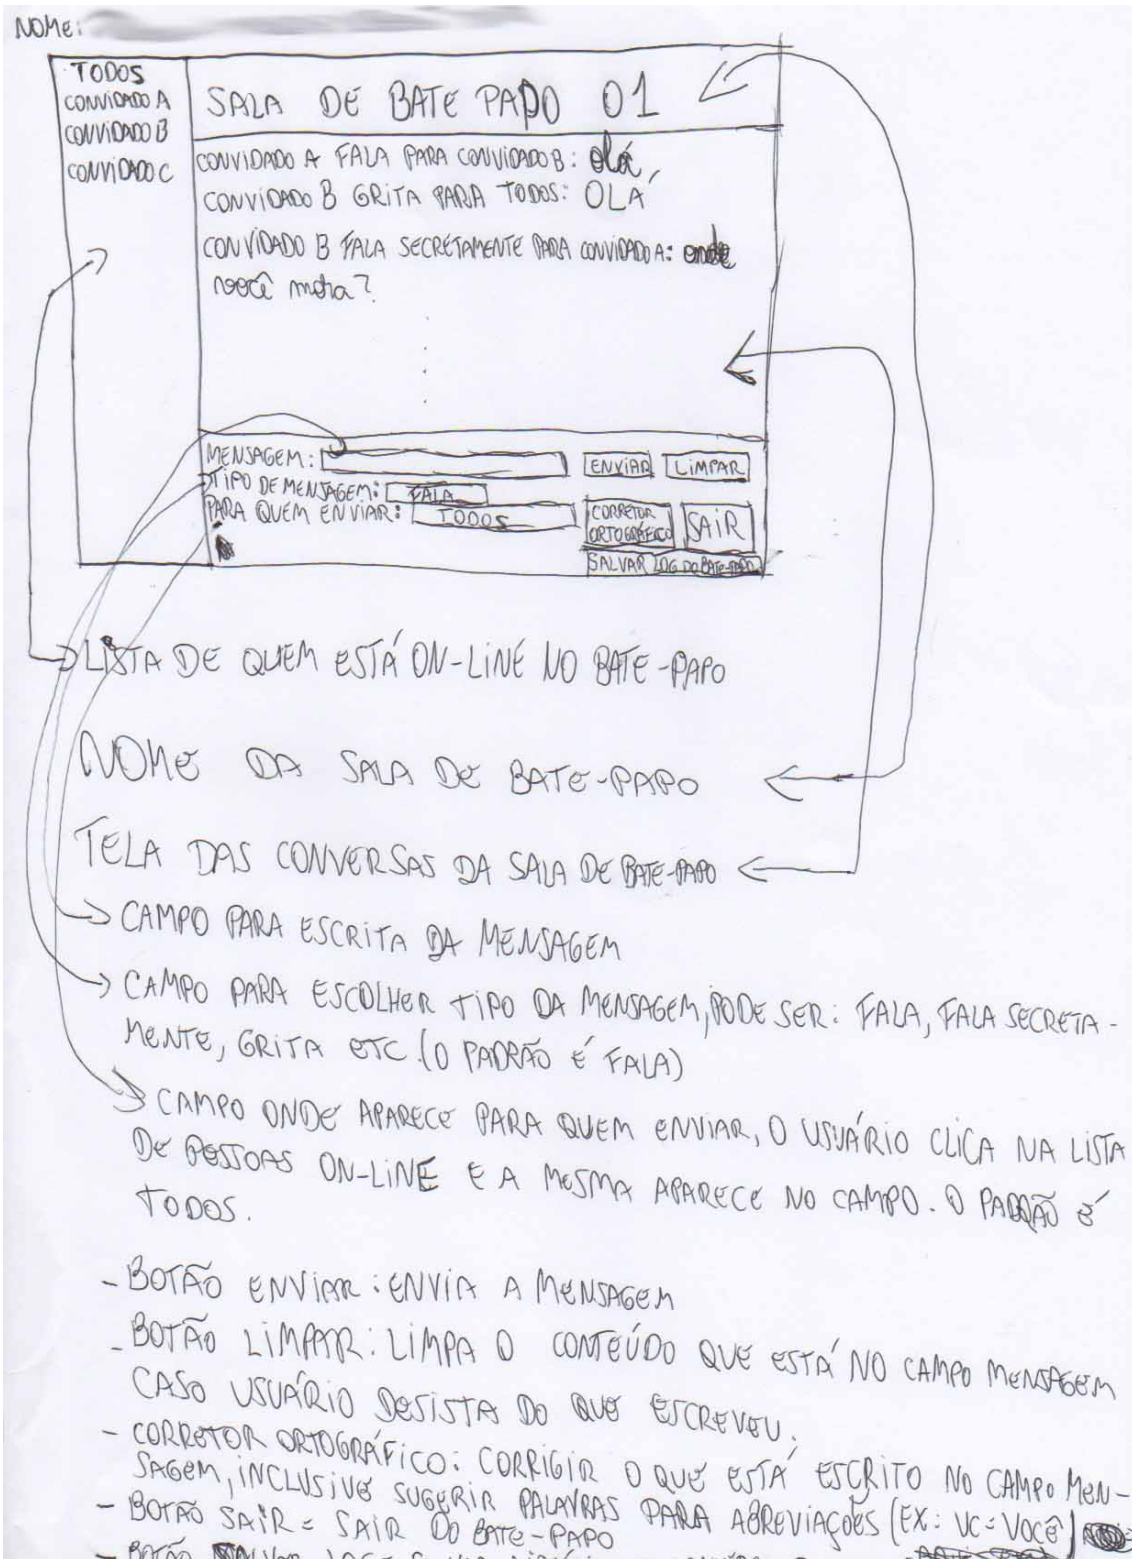 NOME:
TODOS
CONVIDADO A
CONVIDADO B
CONVIDADO C
SALA DE BATE PAPO 01
CONVIDADO A FALA PARA CONVIDADO B: olá,
CONVIDADO B GRITA PARA TODOS: OLÁ
CONVIDADO B FALA SECRETAMENTE PARA CONVIDADO A: onde
você mora?
MENSAGEM:
ENVIAR
LIMPAR
TIPO DE MENSAGEM: FALA
PARA QUEM ENVIAR: TODOS
CORRETOR
ORTOGRÁFICO
SAIR
SALVAR LOG DO BATE-PAPO
LISTA DE QUEM ESTÁ ON-LINE NO BATE-PAPO
NOME DA SALA DE BATE-PAPO
TELA DAS CONVERSAS DA SALA DE BATE-PAPO
CAMPO PARA ESCRITA DA MENSAGEM
CAMPO PARA ESCOLHER TIPO DA MENSAGEM, PODE SER: FALA, FALA SECRETA-
MENTE, GRITA ETC. (O PADRÃO É FALA)
CAMPO ONDE APARECE PARA QUEM ENVIAR, O USUÁRIO CLICA NA LISTA
DE PESSOAS ON-LINE E A MESMA APARECE NO CAMPO. O PADRÃO É
TODOS.
- BOTÃO ENVIAR: ENVIA A MENSAGEM
- BOTÃO LIMPAR: LIMPA O CONTEÚDO QUE ESTÁ NO CAMPO MENSAGEM
CASO USUÁRIO DESISTA DO QUE ESCREVEU.
- CORRETOR ORTOGRÁFICO: CORRIGIR O QUE ESTÁ ESCRITO NO CAMPO MEN-
SAGEM, INCLUSIVE SUGERIR PALAVRAS PARA ABREVIAÇÕES (EX: VC = VOCÊ)
- BOTÃO SAIR = SAIR DO BATE-PAPO
- BOTÃO SALVAR